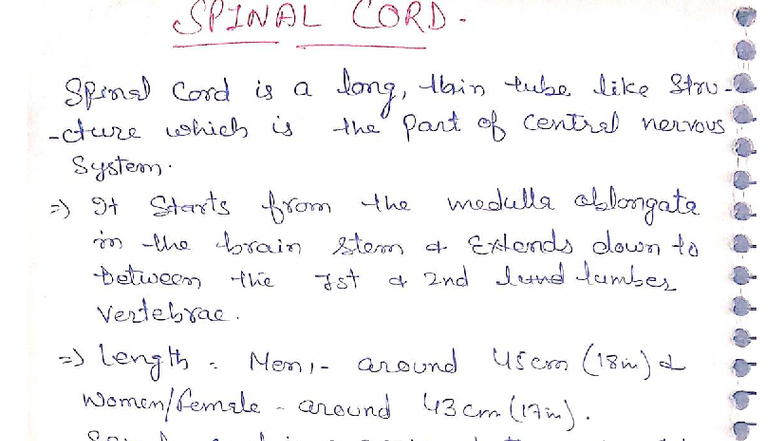 SPINAL CORD.
Spinal Cord is a long, thin tube like Stru-
-cture which is the part of central nervous
System.
=> It Starts from the medulla oblongata
in the brain stem & Extends down to
between the 1st & 2nd lumber
Vertebrae.
=> Length - Men,- around 45cm (18in) &
Women/female - around 43cm (17in).